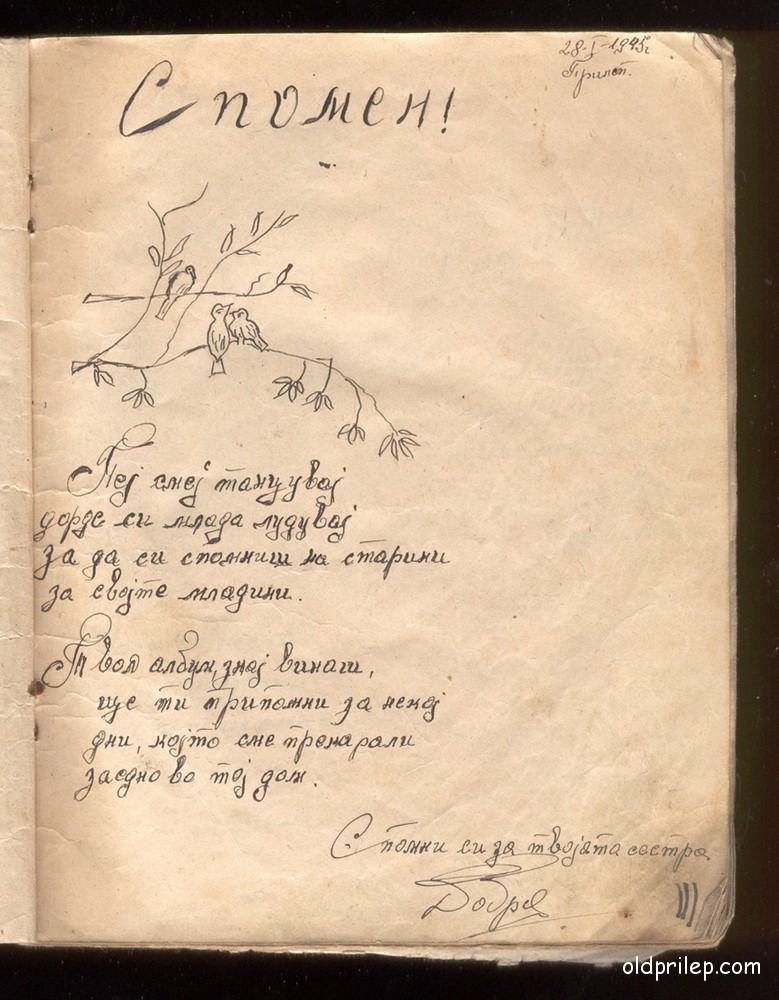 28-I-1945г
Прилеп.
Спомен!
Пеј смеј танцувај
дорде си млада лудувај
за да си спомниш на старини
за својте младини.
Твоя албум, знај винаш,
ще ти припомни за некој
дни, којто сме прекарали
заедно во тој дом.
Спомни си за твојата сестра
Добра
oldprilep.com